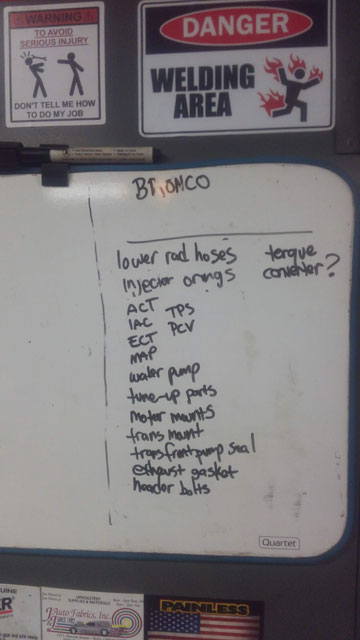 WARNING
TO AVOID
SERIOUS INJURY
DON'T TELL ME HOW
TO DO MY JOB
DANGER
WELDING
AREA
BRONCO
lower rad hoses
injector orings
ACT
IAC
ECT
MAP
TPS
PCV
water pump
tune-up parts
motor mounts
trans mount
trans front pump seal
exhaust gasket
header bolts
torque
converter?
Quartet
UPHOLSTERY
SUPPLIES & MATERIALS
Auto Fabrics, Inc.
PAINLESS